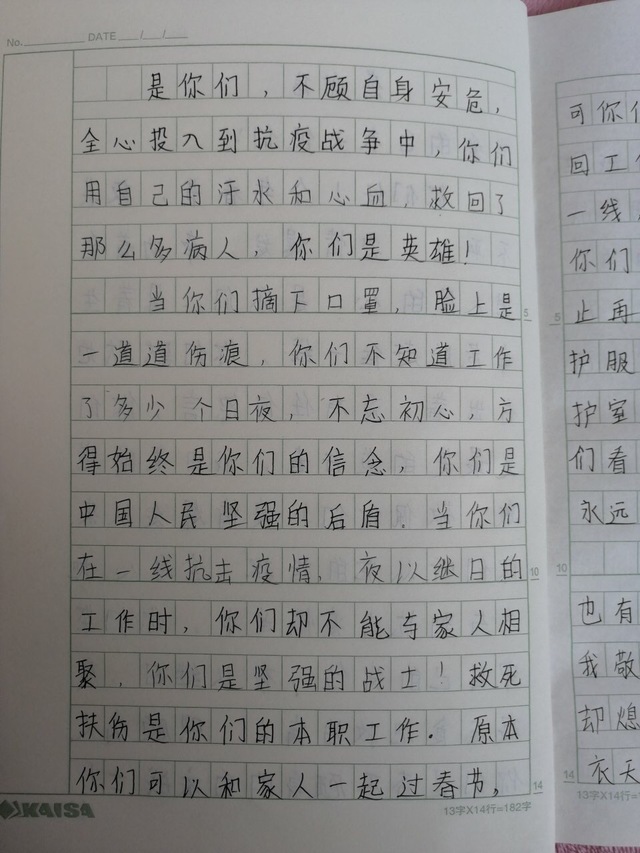 No. DATE / /
是你们，不顾自身安危，
全心投入到抗疫战争中，你们
用自己的汗水和心血，救回了
那么多病人，你们是英雄！
当你们摘下口罩，脸上是
5
一道道伤痕，你们不知道工作
了多少个日夜，不忘初心，方
得始终是你们的信念，你们是
中国人民坚强的后盾.当你们
在一线抗击疫情，夜以继日的
10
工作时，你们却不能与家人相
聚.你们是坚强的战士！救死
扶伤是你们的本职工作.原本
你们可以和家人一起过春节，
14
KAISA
13字X14行=182字
可你们
回工
一线
你们
止再
5
护服
护室
们看
永远
10
也有
我敬
却熄
衣天
14
13字X14行=182字